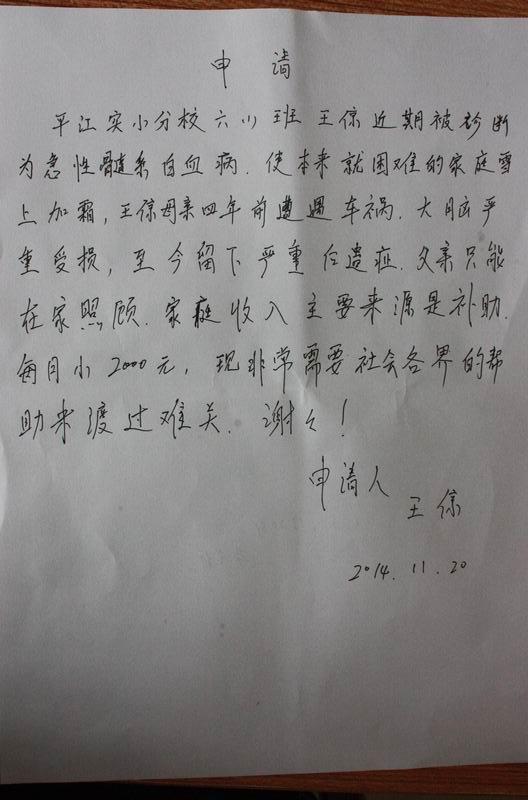 申 请
平江实小分校六(1)班 王倞近期被诊断
为急性髓系白血病.使本来就困难的家庭雪
上加霜,王倞母亲四年前遭遇车祸.大脑严
重受损,至今留下严重后遗症.父亲只能
在家照顾.家庭收入主要来源是补助.
每月小2000元,现非常需要社会各界的帮
助来渡过难关.谢々!
申请人
王倞
2014.11.20